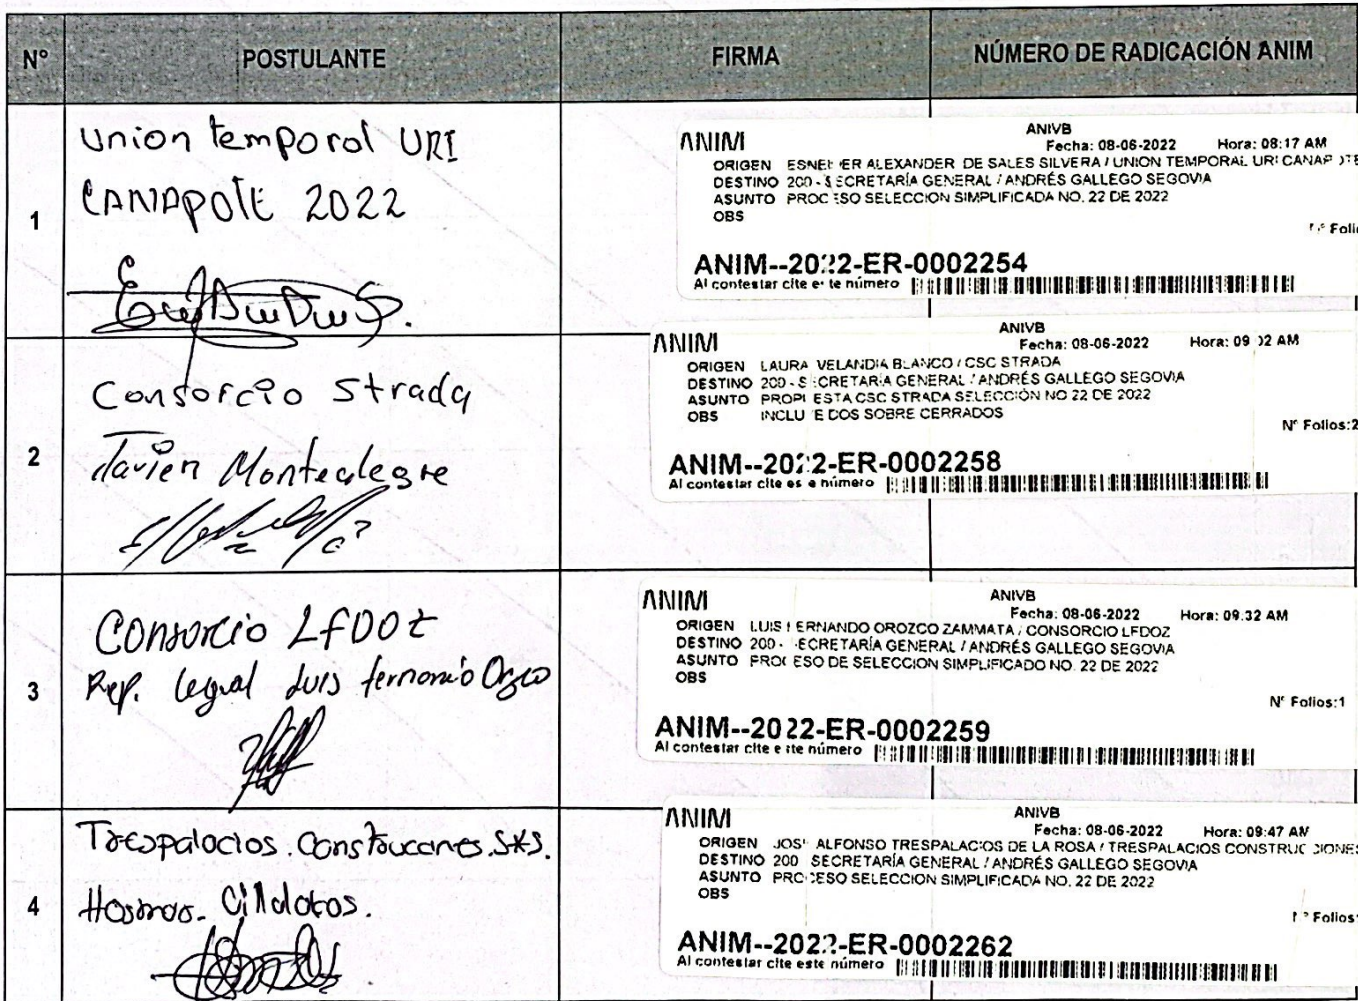 N° POSTULANTE FIRMA NÚMERO DE RADICACIÓN ANIM
1
Union temporal URI
CANAPOTE 2022
ANIM
ANIVB
Fecha: 08-06-2022 Hora: 08:17 AM
ORIGEN ALEXANDER DE SALES SILVERA / UNION TEMPORAL URI
DESTINO 200 - SECRETARÍA GENERAL / ANDRÉS GALLEGO SEGOVIA
ASUNTO PROCESO SELECCION SIMPLIFICADA NO. 22 DE 2022
OBS
N° Foli
ANIM--2022-ER-0002254
Al contestar cite este número
2
Consorcio Strada
Javier Montealegre
ANIM
ANIVB
Fecha: 08-06-2022 Hora: 09:02 AM
ORIGEN LAURA VELANDIA BLANCO / CSC STRADA
DESTINO 200 - SECRETARÍA GENERAL / ANDRÉS GALLEGO SEGOVIA
ASUNTO PROPUESTA CSC STRADA SELECCIÓN NO 22 DE 2022
OBS INCLUYE DOS SOBRE CERRADOS
N° Folios:2
ANIM--2022-ER-0002258
Al contestar cite este número
3
Consorcio LFDOZ
Rep. legal Luis fernando Orozco
ANIM
ANIVB
Fecha: 08-06-2022 Hora: 09:32 AM
ORIGEN LUIS FERNANDO OROZCO ZAMMATA / CONSORCIO LFDOZ
DESTINO 200 - SECRETARÍA GENERAL / ANDRÉS GALLEGO SEGOVIA
ASUNTO PROCESO DE SELECCION SIMPLIFICADO NO. 22 DE 2022
OBS
N° Folios:1
ANIM--2022-ER-0002259
Al contestar cite este número
4
Trespalacios. Construcciones. SAS.
ANIM
ANIVB
Fecha: 08-06-2022 Hora: 09:47 AM
ORIGEN JOSE ALFONSO TRESPALACIOS DE LA ROSA / TRESPALACIOS CONSTRUCCIONES
DESTINO 200 SECRETARÍA GENERAL / ANDRÉS GALLEGO SEGOVIA
ASUNTO PROCESO SELECCION SIMPLIFICADA NO. 22 DE 2022
OBS
N° Folios:
ANIM--2022-ER-0002262
Al contestar cite este número